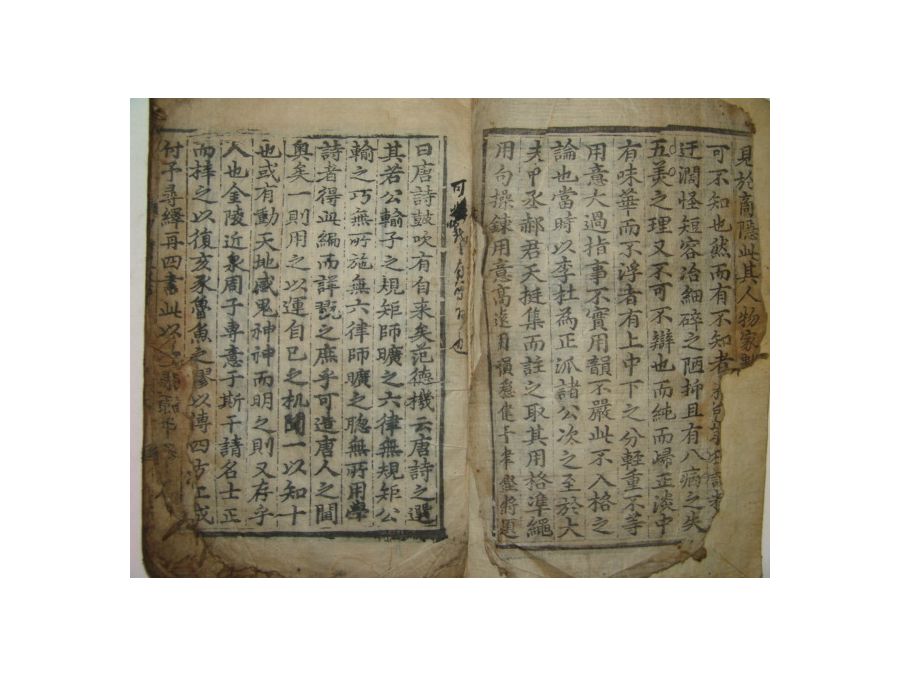 見於商隱此其人物家
可不知也然而有不知者
迂濶怪短容冶細碎之陋抑且有八病之失
五美之理又不可不辯也而純而歸正淡中
有味華而不浮者有上中下之分輊重不等
用意大過指事不實用韻不嚴此不入格之
論也當時以李杜為正派諸公次之至於大
夫中丞郝君天挺集而註之取其用格準繩
用句操鍊用意高遠
可
也
曰唐詩鼓吹有自来矣范德機云唐詩之選
其若公輸子之規矩師曠之六律無規矩公
輸之巧無所施無六律師曠之聦無所用學
詩者得此編而詳翫之庶乎可造唐人之閫
奥矣一則用之以運自已之机聞一以知十
也或有動天地感鬼神神而明之則又存乎
人也金陵近泉周子專意于斯干請名士正
而擇之以復亥豕魯魚之謬以傳四方工成
付予尋繹再四書此以